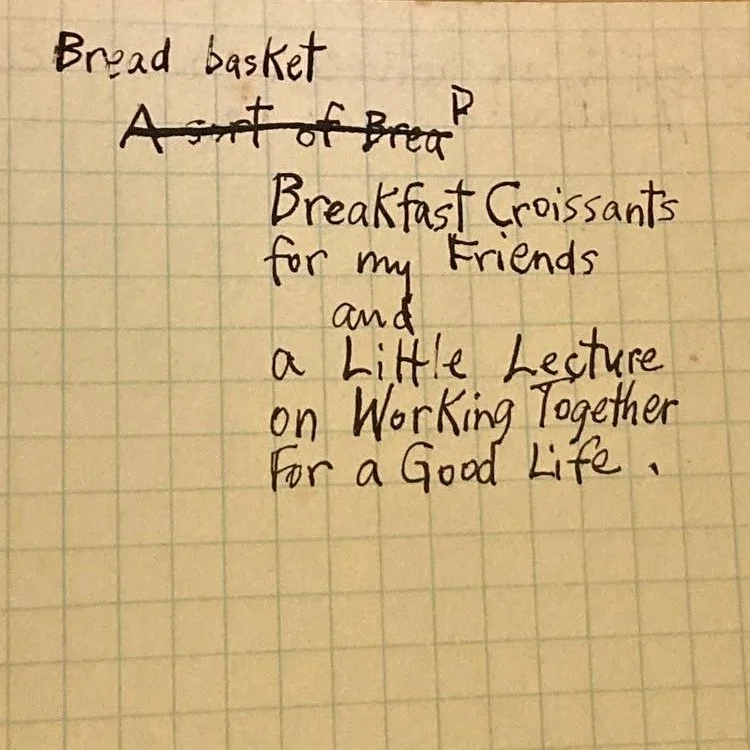 Bread basket
A sort of Brea D
Breakfast Croissants
for my Friends
and
a Little Lecture
on Working Together
For a Good Life.